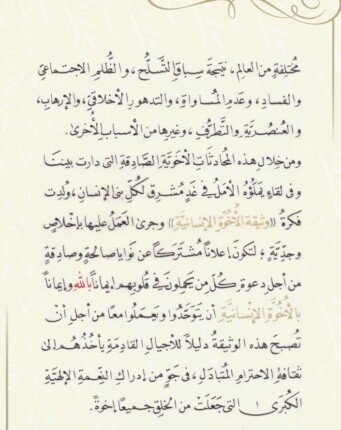 مُختلِفةٍ من العالَمِ، نتيجةَ سِباقِ التَّسَلُّحِ، والظُّلمِ الاجتماعيِّ
والفسادِ، وعدمِ المُساواةِ، والتدهورِ الأخلاقيِّ، والإرهابِ،
والعُنصُريَّةِ والتَّطرُّفِ، وغيرِها من الأسبابِ الأُخرىٰ.
ومن خلالِ هذه المُحادثاتِ الأخَويَّةِ الصَّادِقةِ التي دارت بينَنا
وفي لقاءٍ يَملَؤُهُ الأمَلُ في غَدٍ مُشرِق لكُلِّ بني الإنسانِ، وُلِدت
فكرةُ «وثيقة الأُخُوَّة الإنسانيَّةِ» وجرى العَمَلُ عليها بإخلاصٍ
وجدِّيَّةٍ؛ لتكونَ إعلاناً مُشتَركاً عن نَوايا صالحةٍ وصادقةٍ
من أجلِ دعوةِ كُلِّ مَن يَحمِلونَ في قُلوبِهم إيماناً باللهِ وإيماناً
بالأُخُوَّةِ الإنْسانيَّةِ أن يَتَوحَّدُوا ويَعمَلُوا معاً من أجلِ أنْ
تُصبحَ هذه الوثيقةُ دليلاً للأجيالِ القادِمةِ يأخُذُهم إلى
ثقافةِ الاحترامِ المُتبادَلِ، في جَوٍّ من إدراكِ النِّعمةِ الإلهيَّةِ
الكُبرَى التي جَعَلَتْ من الخلقِ جميعاً إخوةً.